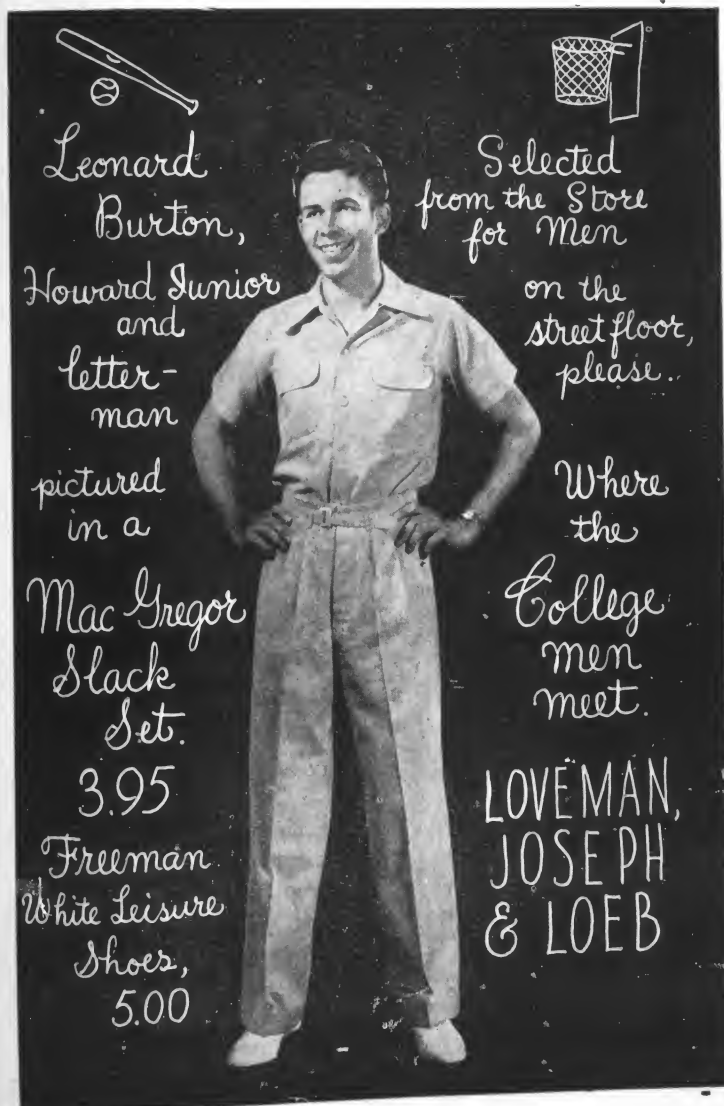 Leonard
Burton,
Howard Junior
and
letter-
man
pictured
in a
Mac Gregor
Slack
Set.
3.95
Freeman
White Leisure
Shoes,
5.00
Selected
from the Store
for Men
on the
street floor,
please..
Where
the
College
men
meet.
LOVEMAN,
JOSEPH
& LOEB